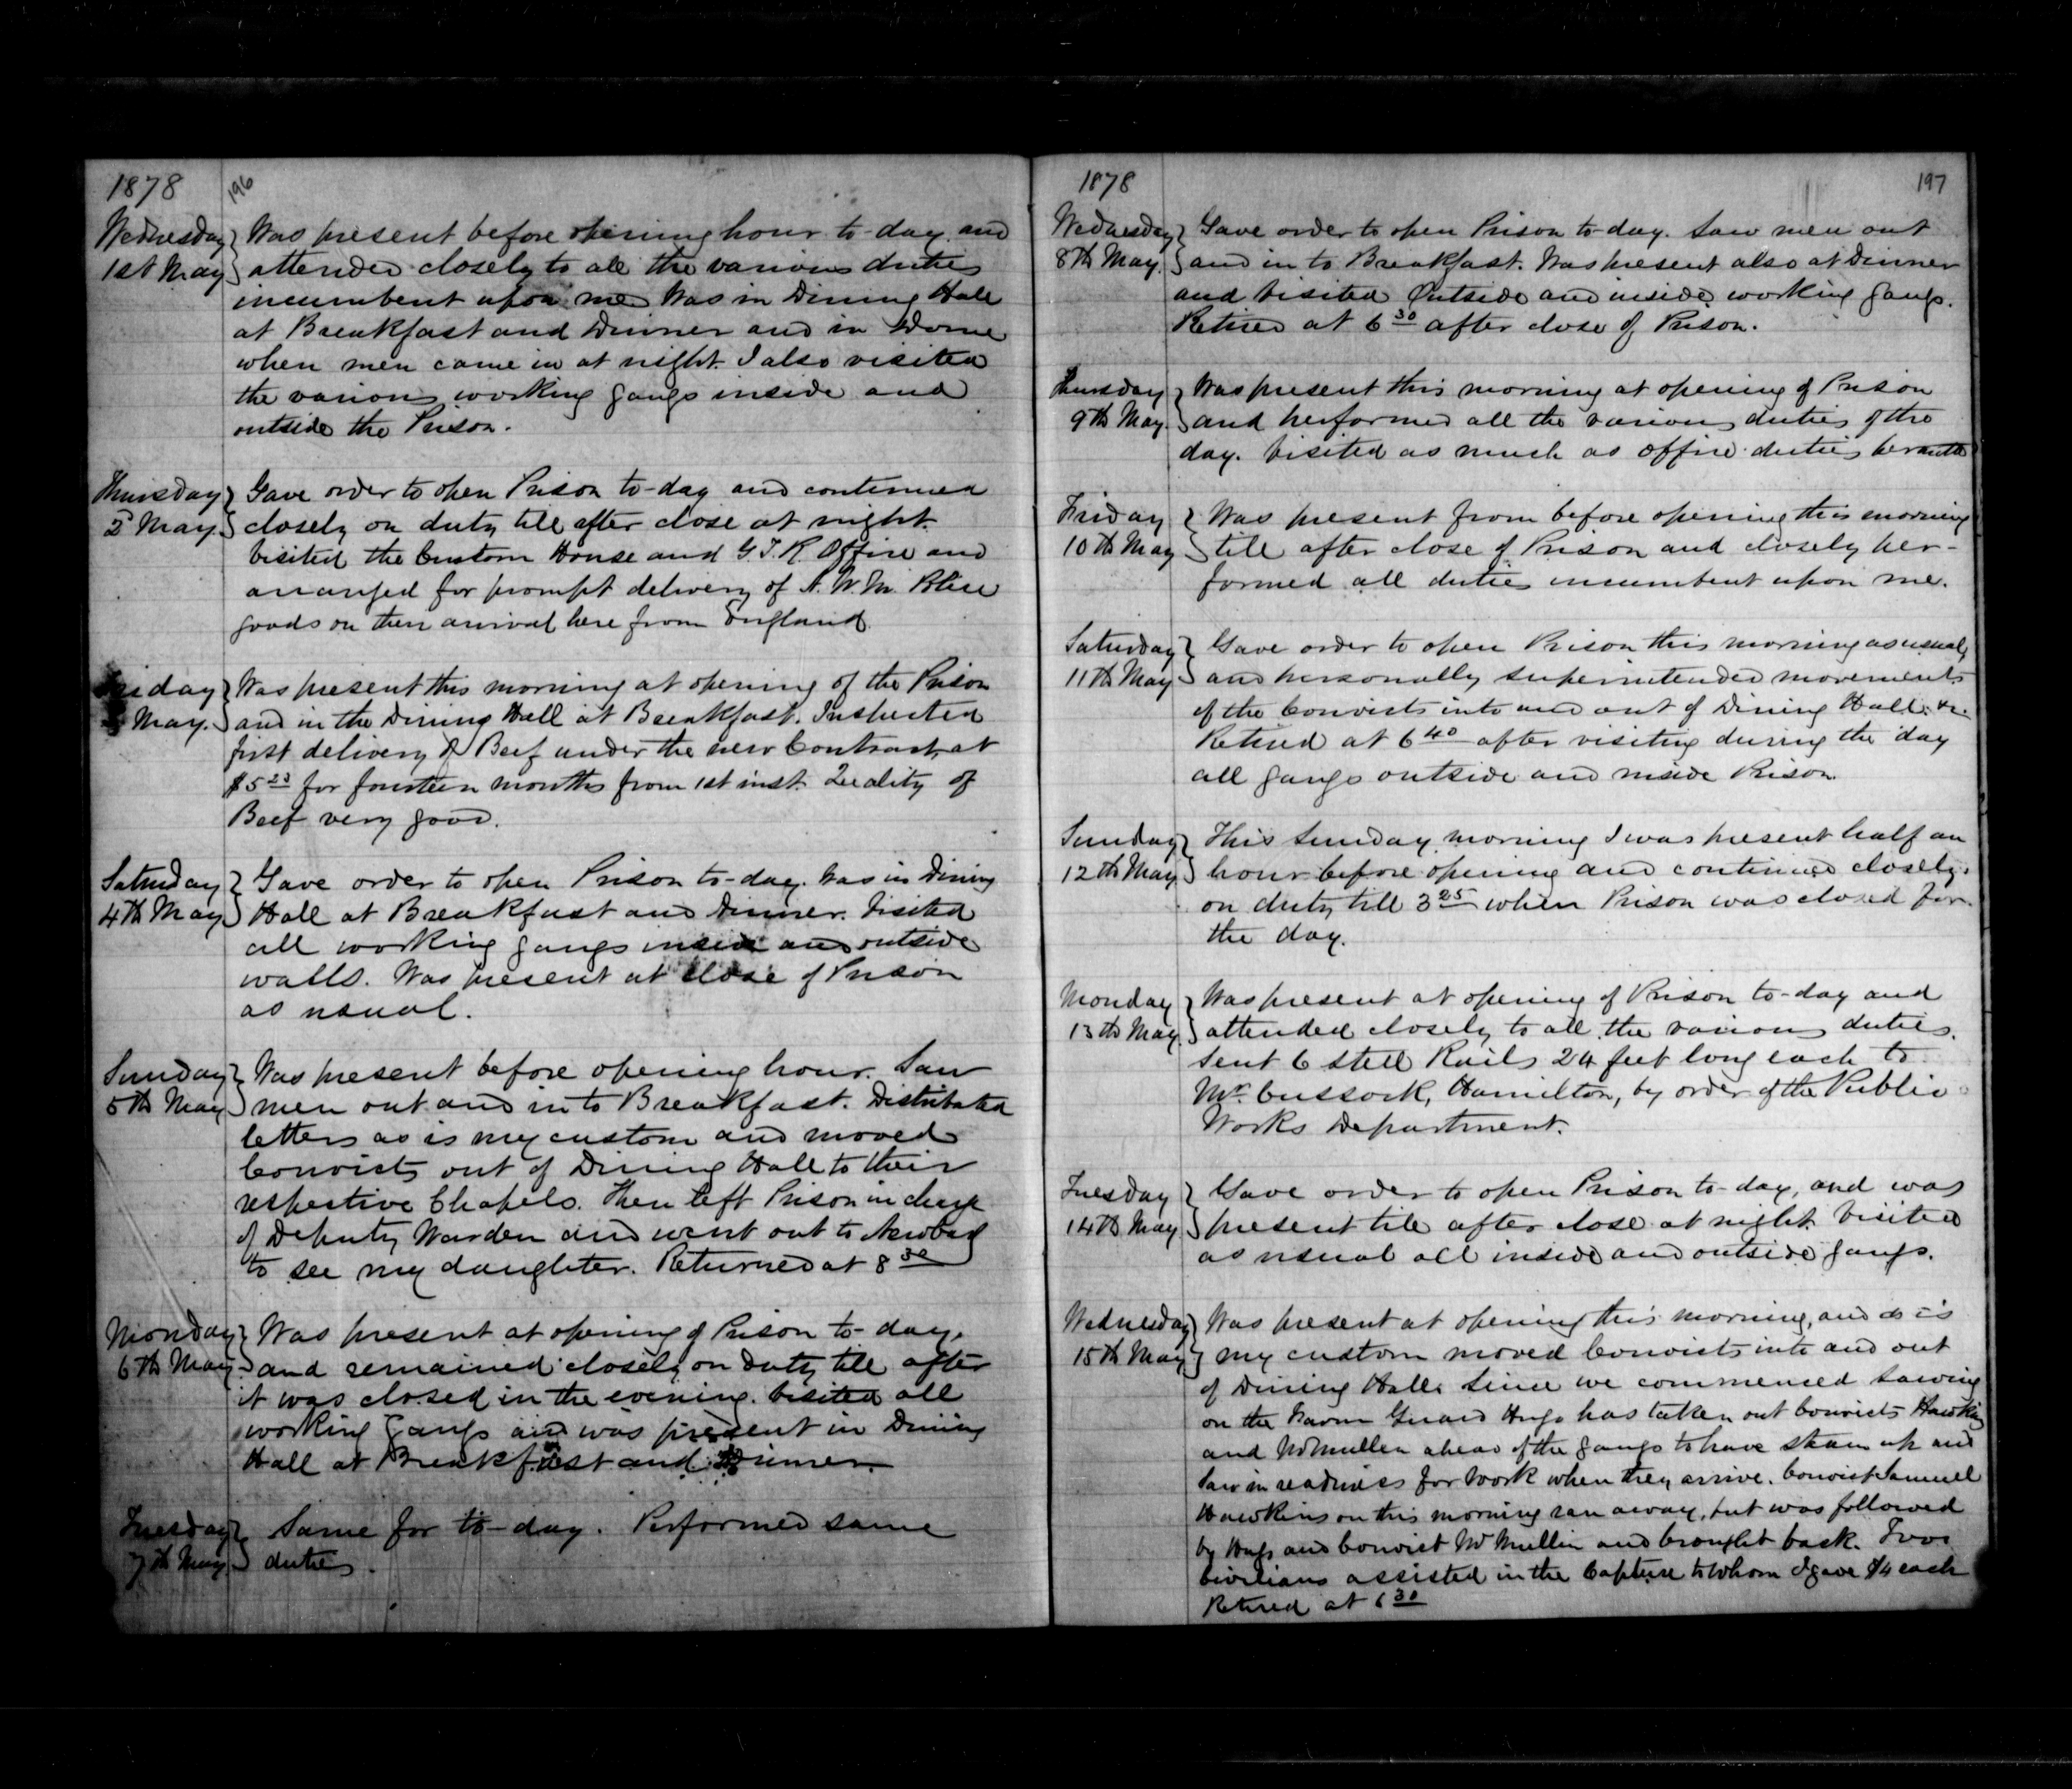 1878
196
Wednesday
1st May
Was present before opening hour to-day and
attended closely to all the various duties
incumbent upon me Was in Dining Hall
at Breakfast and Dinner and in Dome
when men came in at night. I also visited
the various working gangs inside and
outside the Prison.
Thursday
2d May.
Gave order to open Prison to-day and continued
closely on duty till after close at night.
Visited the Custom House and G.T.R. Office and
arranged for prompt delivery of N.W.M. Police
goods on their arrival here from England.
Friday
May.
Was present this morning at opening of the Prison
and in the Dining Hall at Breakfast. Inspected
first delivery of Beef under the new Contract, at
$5 23 for fourteen months from 1st inst. Quality of
Beef very good.
Saturday
4th May
Gave order to open Prison to-day. Was in Dining
Hall at Breakfast and Dinner. Visited
all working gangs inside and outside
walls. Was present at close of Prison
as usual.
Sunday
5th May
Was present before opening hour. Saw
men out and in to Breakfast. Distributed
letters as is my custom and moved
Convicts out of Dining Hall to their
respective Chapels. Then left Prison in charge
of Deputy Warden and went out to
to see my daughter. Returned at 8 30
Monday
6th May
Was present at opening of Prison to-day,
and remained closely on duty till after
it was closed in the evening. Visited all
working gangs and was present in Dining
Hall at Breakfast and Dinner.
Tuesday
7th May
Same for to-day. Performed same
duties.
1878
197
Wednesday
8th May.
Gave order to open Prison to-day. Saw men out
and in to Breakfast. Was present also at Dinner
and visited Outside and inside working gangs.
Retired at 6 30 after close of Prison.
Thursday
9th May.
Was present this morning at opening of Prison
and performed all the various duties of the
day. Visited as much as office duties permitted
Friday
10th May
Was present from before opening this morning
till after close of Prison and closely per-
formed all duties incumbent upon me.
Saturday
11th May
Gave order to open Prison this morning as usual,
and personally superintended movements
of the Convicts into and out of Dining Hall. &c.
Retired at 6 40 after visiting during the day
all gangs outside and inside Prison
Sunday
12th May
This Sunday morning I was present half an
hour before opening and continued closely
on duty till 3 25 when Prison was closed for
the day.
Monday
13th May.
Was present at opening of Prison to-day and
attended closely to all the various duties.
Sent 6 steel Rails 24 feet long each to
Mr. Cussock, Hamilton, by order of the Public
Works Department.
Tuesday
14th May
Gave order to open Prison to-day, and was
present till after close at night. Visited
as usual all inside and outside gangs.
Wednesday
15th May
Was present at opening this morning, and as is
my custom moved Convicts into and out
of Dining Hall. Since we commenced sawing
on the Farm Guard Hugo has taken out Convicts Hawkins
and McMullen ahead of the gangs to have steam up and
saw in readiness for work when they arrive. Convict Samuel
Hawkins on this morning ran away, but was followed
by Hugo and Convict McMullin and brought back. Two
Civilians assisted in the Capture to whom I gave $4 each
Retired at 6 30